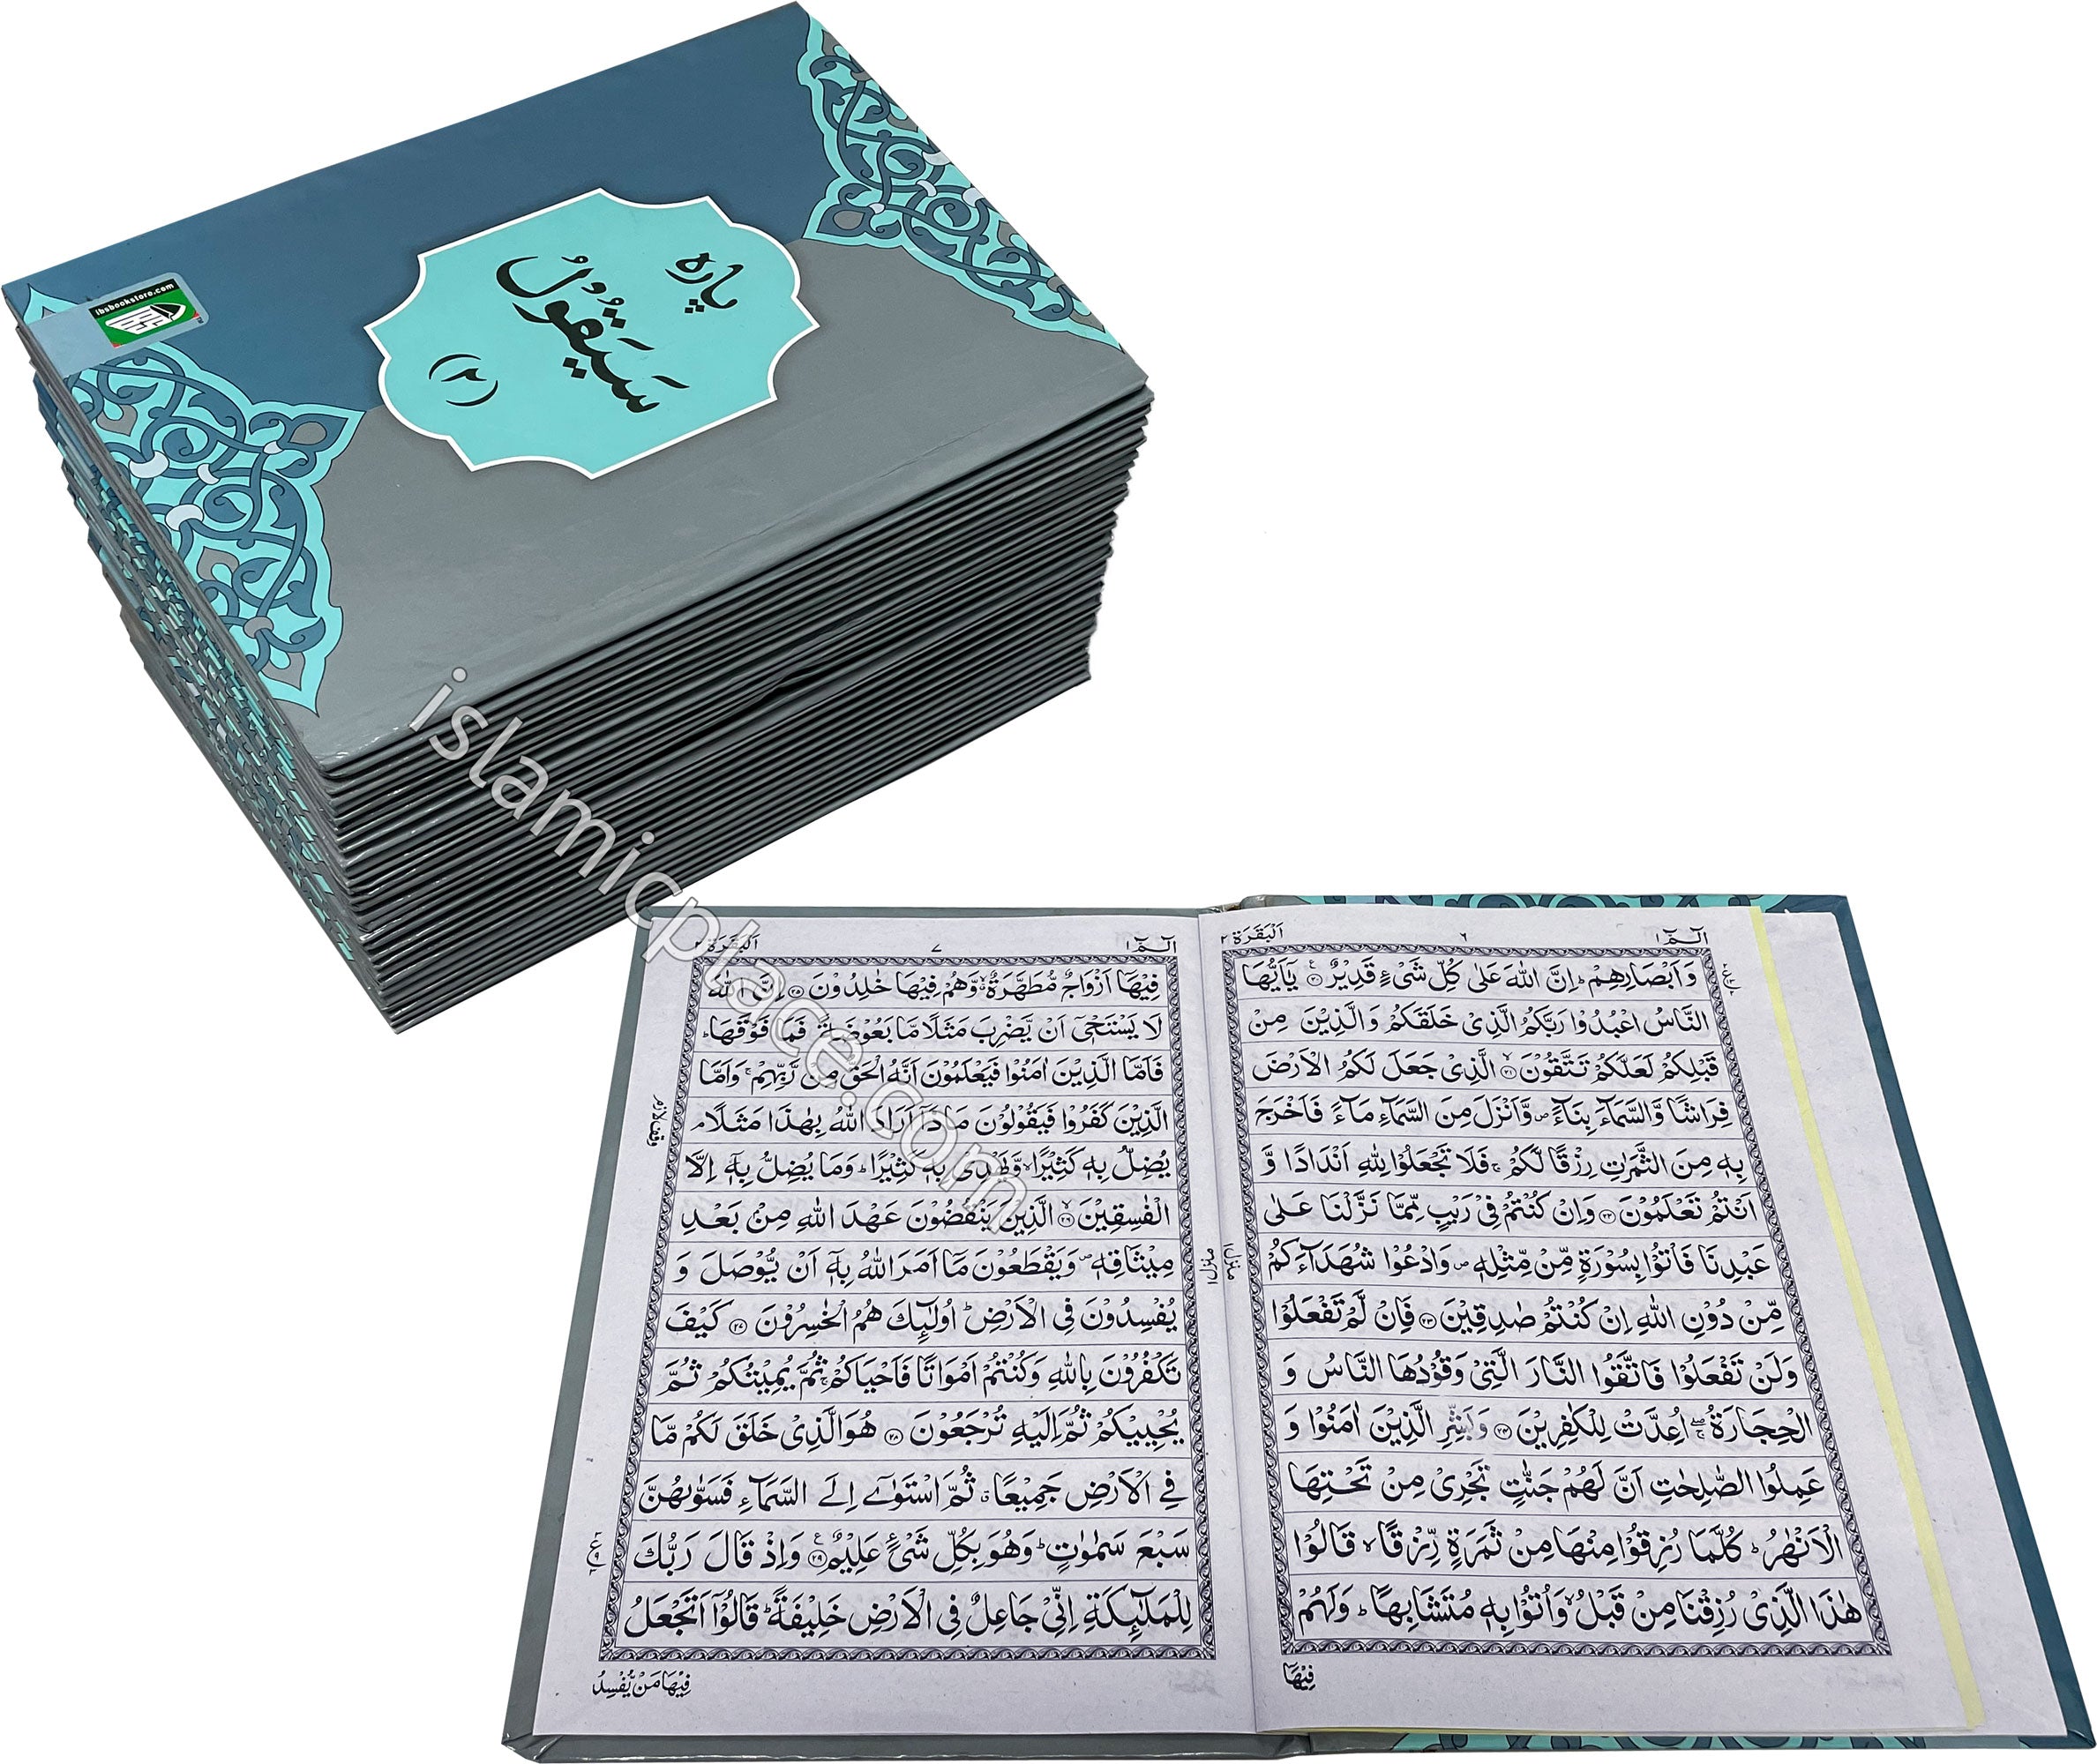 پاره
سَيَقُولُ
(٢)
ibsbookstore.com
IBS
islamicplace.com
الٓمّٓ ١
٦
اَلْبَقَرَة ٢
وَ اَبْصَارِهِمْ ؕ اِنَّ اللّٰهَ عَلٰى كُلِّ شَیْءٍ قَدِيْرٌ ﴿٢٠﴾ يٰٓاَيُّهَا
النَّاسُ اعْبُدُوْا رَبَّكُمُ الَّذِیْ خَلَقَكُمْ وَ الَّذِيْنَ مِنْ
قَبْلِكُمْ لَعَلَّكُمْ تَتَّقُوْنَ ﴿٢١﴾ الَّذِیْ جَعَلَ لَكُمُ الْاَرْضَ
فِرَاشًا وَّ السَّمَآءَ بِنَآءً ۪ وَّ اَنْزَلَ مِنَ السَّمَآءِ مَآءً فَاَخْرَجَ
بِهٖ مِنَ الثَّمَرٰتِ رِزْقًا لَّكُمْ ۚ فَلَا تَجْعَلُوْا لِلّٰهِ اَنْدَادًا وَّ
اَنْتُمْ تَعْلَمُوْنَ ﴿٢٢﴾ وَ اِنْ كُنْتُمْ فِیْ رَيْبٍ مِّمَّا نَزَّلْنَا عَلٰى
عَبْدِنَا فَاْتُوْا بِسُوْرَةٍ مِّنْ مِّثْلِهٖ ۪ وَ ادْعُوْا شُهَدَآءَكُمْ
مِّنْ دُوْنِ اللّٰهِ اِنْ كُنْتُمْ صٰدِقِيْنَ ﴿٢٣﴾ فَاِنْ لَّمْ تَفْعَلُوْا
وَ لَنْ تَفْعَلُوْا فَاتَّقُوا النَّارَ الَّتِیْ وَقُوْدُهَا النَّاسُ وَ
الْحِجَارَةُ ۖۚ اُعِدَّتْ لِلْكٰفِرِيْنَ ﴿٢٤﴾ وَ بَشِّرِ الَّذِيْنَ اٰمَنُوْا وَ
عَمِلُوا الصّٰلِحٰتِ اَنَّ لَهُمْ جَنّٰتٍ تَجْرِیْ مِنْ تَحْتِهَا
الْاَنْهٰرُ ؕ كُلَّمَا رُزِقُوْا مِنْهَا مِنْ ثَمَرَةٍ رِّزْقًا ۙ قَالُوْا
هٰذَا الَّذِیْ رُزِقْنَا مِنْ قَبْلُ ۙ وَ اُتُوْا بِهٖ مُتَشَابِهًا ؕ وَ لَهُمْ
فِيْهَا
منزل ١
الٓمّٓ ١
٧
اَلْبَقَرَة ٢
فِيْهَاۤ اَزْوَاجٌ مُّطَهَّرَةٌ ۙ وَّ هُمْ فِيْهَا خٰلِدُوْنَ ﴿٢٥﴾ اِنَّ اللّٰهَ
لَا يَسْتَحْیٖۤ اَنْ يَّضْرِبَ مَثَلًا مَّا بَعُوْضَةً فَمَا فَوْقَهَا ؕ
فَاَمَّا الَّذِيْنَ اٰمَنُوْا فَيَعْلَمُوْنَ اَنَّهُ الْحَقُّ مِنْ رَّبِّهِمْ ۚ وَ اَمَّا
الَّذِيْنَ كَفَرُوْا فَيَقُوْلُوْنَ مَاذَاۤ اَرَادَ اللّٰهُ بِهٰذَا مَثَلًا ۘ
يُضِلُّ بِهٖ كَثِيْرًا ۙ وَّ يَهْدِیْ بِهٖ كَثِيْرًا ؕ وَ مَا يُضِلُّ بِهٖۤ اِلَّا
الْفٰسِقِيْنَ ﴿٢٦﴾ الَّذِيْنَ يَنْقُضُوْنَ عَهْدَ اللّٰهِ مِنْۢ بَعْدِ
مِيْثَاقِهٖ ۪ وَ يَقْطَعُوْنَ مَاۤ اَمَرَ اللّٰهُ بِهٖۤ اَنْ يُّوْصَلَ وَ
يُفْسِدُوْنَ فِی الْاَرْضِ ؕ اُولٰٓئِكَ هُمُ الْخٰسِرُوْنَ ﴿٢٧﴾ كَيْفَ
تَكْفُرُوْنَ بِاللّٰهِ وَ كُنْتُمْ اَمْوَاتًا فَاَحْيَاكُمْ ۚ ثُمَّ يُمِيْتُكُمْ ثُمَّ
يُحْيِيْكُمْ ثُمَّ اِلَيْهِ تُرْجَعُوْنَ ﴿٢٨﴾ هُوَ الَّذِیْ خَلَقَ لَكُمْ مَّا
فِی الْاَرْضِ جَمِيْعًا ۗ ثُمَّ اسْتَوٰۤى اِلَى السَّمَآءِ فَسَوّٰىهُنَّ
سَبْعَ سَمٰوٰتٍ ؕ وَ هُوَ بِكُلِّ شَیْءٍ عَلِيْمٌ ﴿٢٩﴾ وَ اِذْ قَالَ رَبُّكَ
لِلْمَلٰٓئِكَةِ اِنِّیْ جَاعِلٌ فِی الْاَرْضِ خَلِيْفَةً ؕ قَالُوْۤا اَتَجْعَلُ
فِيْهَا مَنْ يُّفْسِدُ
وقف لازم
منزل ١